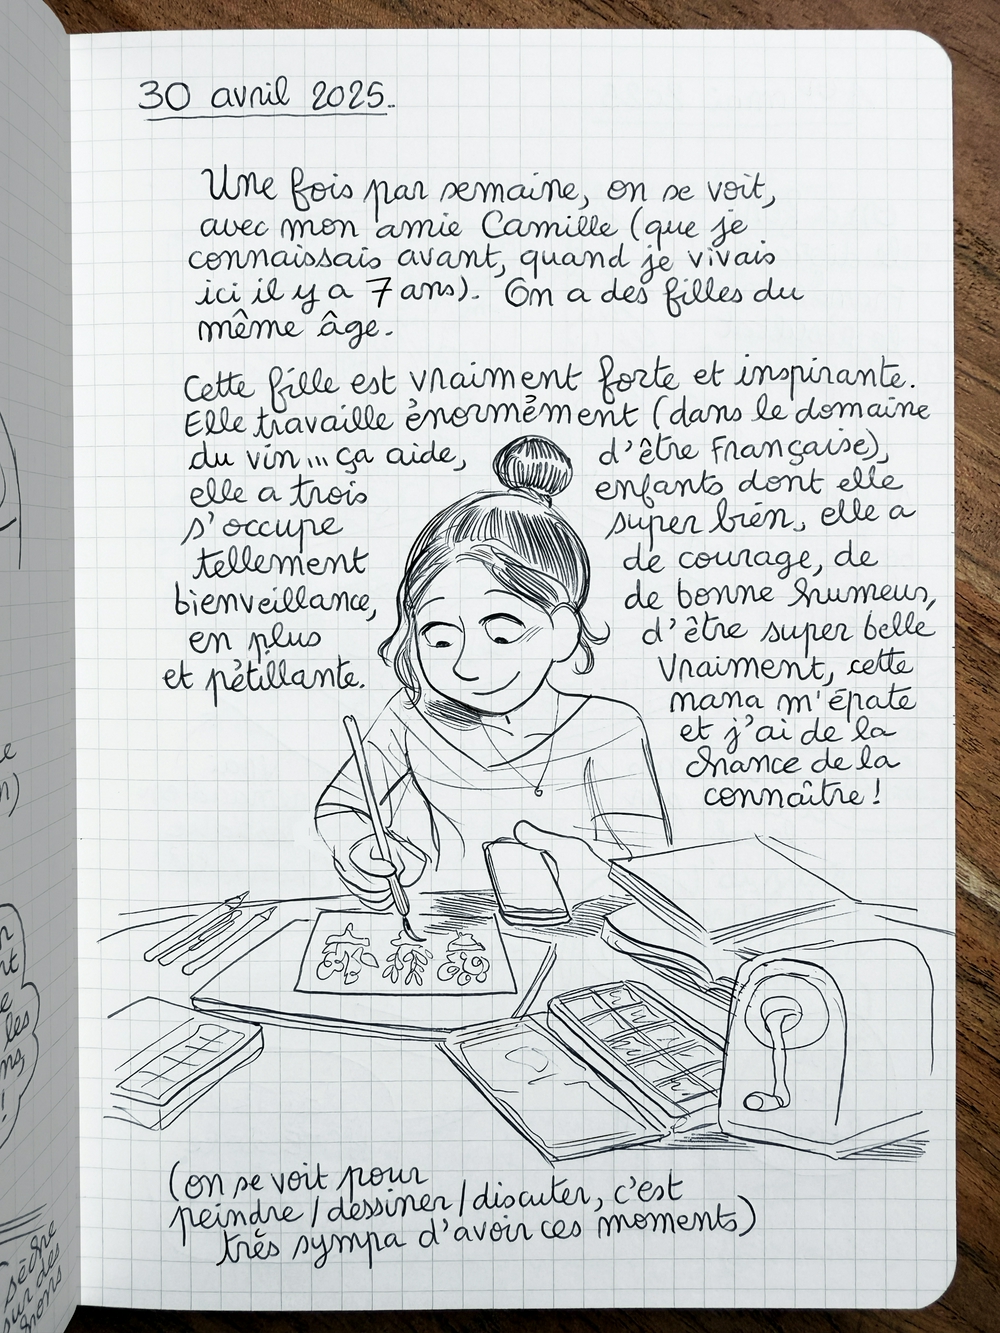 30 avril 2025.
Une fois par semaine, on se voit,
avec mon amie Camille (que je
connaissais avant, quand je vivais
ici il y a 7 ans). On a des filles du
même âge.
Cette fille est vraiment forte et inspirante.
Elle travaille énormément (dans le domaine
du vin... ça aide, d'être Française),
elle a trois enfants dont elle
s'occupe super bien, elle a
tellement de courage, de
bienveillance, de bonne humeur,
en plus d'être super belle
et pétillante. Vraiment, cette
mana m'épate
et j'ai de la
chance de la
connaître !
(on se voit pour
peindre / dessiner / discuter, c'est
très sympa d'avoir ces moments)